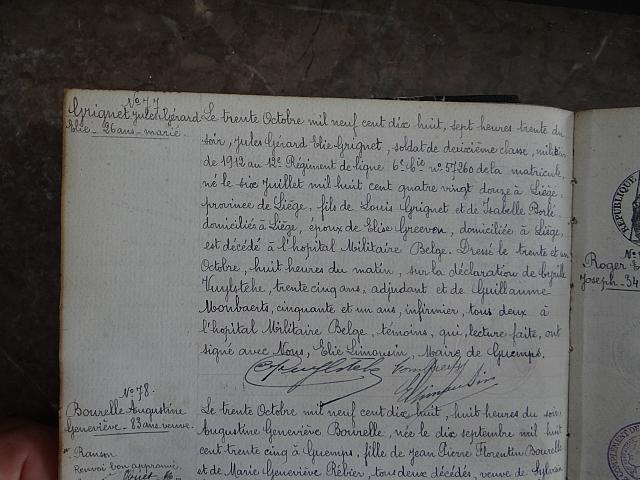 N° 77
Grignet Jules Gérard
Elie - 26 ans - marié.
Le trente Octobre mil neuf cent dix huit, sept heures trente du
soir, Jules Gérard Elie Grignet, soldat de deuxième classe, milicien
de 1912 au 12e Régiment de ligne 6e Cie n° 57260 de la matricule,
né le six Juillet mil huit cent quatre vingt douze à Liège,
province de Liège, fils de Louis Grignet et de Isabelle Borlé,
domiciliés à Liège, époux de Elise Greevon, domiciliée à Liège,
est décédé à l'hopital Militaire Belge. Dressé le trente et un
Octobre, huit heures du matin, sur la déclaration de Cyrille
Vuylsteke, trente cinq ans, adjudant et de Guillaume
Mombaerts, cinquante et un ans, infirmier, tous deux à
l'hopital Militaire Belge, témoins, qui, lecture faite, ont
signé avec Nous, Elie Limousin, Maire de Guemps.
CVuylsteke
ELimousin
N° 78.
Bourelle Augustine
Geneviève - 83 ans - veuve
Ranson
Renvoi bon approuvé
Le trente Octobre mil neuf cent dix huit, huit heures du soir
Augustine Geneviève Bourelle, née le dix septembre mil huit
cent trente cinq à Guemps, fille de Jean Pierre Florentin Bourelle
et de Marie Geneviève Rébier, tous deux décédés, veuve de Sylvain
RÉPUBLIQUE
N°
Roger
Joseph - 34